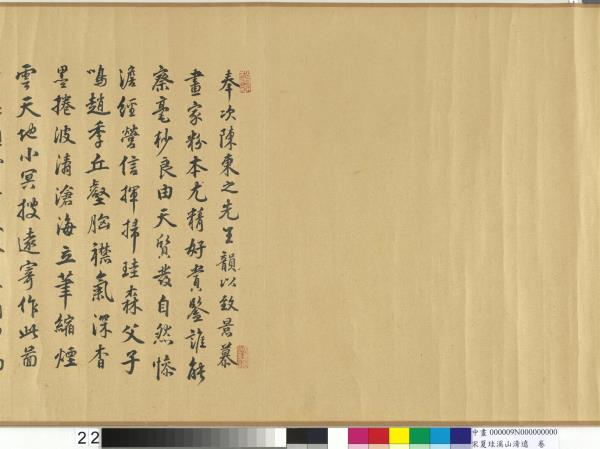 奉次陳東之先生韻以致景慕
畫家粉本尤精好賞鑒誰能
察毫杪良由天質發自然慘
澹經營信揮掃珪森父子
鳴趙季丘壑胸襟氣深杳
墨捲波濤滄海立筆縮煙
雲天地小冥搜遠寄作此啚
22
中畫 000009N000000000
宋夏珪溪山清遠 卷